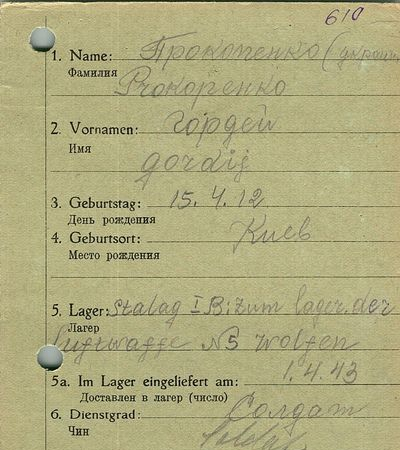 610
1. Name: Прокопенко (украин
Фамилия
Prokopenko
2. Vornamen: Гордей
Имя
Gordij
3. Geburtstag: 15.4.12
День рождения
4. Geburtsort: Киев
Место рождения
5. Lager: Stalag I B; zum lager der
Лагер
luftwaffe N5 Wolfen
5a. Im Lager eingeliefert am: 1.4.43
Доставлен в лагер (число)
6. Dienstgrad: Солдат
Чин
Soldat